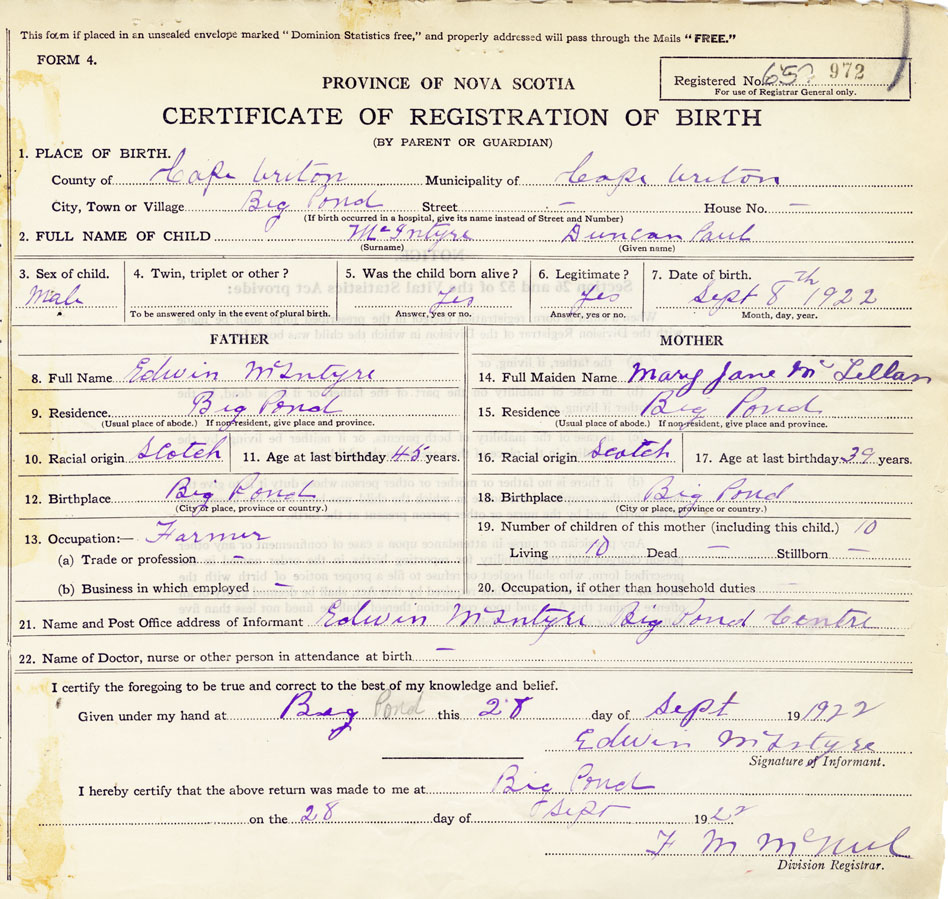 This form if placed in an unsealed envelope marked "Dominion Statistics free," and properly addressed will pass through the Mails "FREE."
FORM 4.
Registered No. 972
For use of Registrar General only.
PROVINCE OF NOVA SCOTIA
CERTIFICATE OF REGISTRATION OF BIRTH
(BY PARENT OR GUARDIAN)
1. PLACE OF BIRTH.
County of Cape Breton Municipality of Cape Breton
City, Town or Village Big Pond Street — House No. —
(If birth occurred in a hospital, give its name instead of Street and Number)
2. FULL NAME OF CHILD McIntyre Duncan Paul
(Surname) (Given name)
3. Sex of child. 4. Twin, triplet or other? 5. Was the child born alive? 6. Legitimate? 7. Date of birth.
Male Yes Yes Sept 8th 1922
To be answered only in the event of plural birth. Answer, yes or no. Answer, yes or no. Month, day, year.
FATHER MOTHER
8. Full Name Edwin McIntyre 14. Full Maiden Name Mary Jane McLellan
9. Residence Big Pond 15. Residence Big Pond
(Usual place of abode.) If non-resident, give place and province. (Usual place of abode.) If non-resident, give place and province.
10. Racial origin Scotch 11. Age at last birthday 45 years. 16. Racial origin Scotch 17. Age at last birthday 39 years.
12. Birthplace Big Pond 18. Birthplace Big Pond
(City or place, province or country.) (City or place, province or country.)
13. Occupation:— Farmer 19. Number of children of this mother (including this child.) 10
(a) Trade or profession — Living 10 Dead — Stillborn —
(b) Business in which employed — 20. Occupation, if other than household duties —
21. Name and Post Office address of Informant Edwin McIntyre Big Pond Centre
22. Name of Doctor, nurse or other person in attendance at birth —
I certify the foregoing to be true and correct to the best of my knowledge and belief.
Given under my hand at Big Pond this 28 day of Sept 19 1922
Edwin McIntyre
Signature of Informant.
I hereby certify that the above return was made to me at Big Pond
on the 28 day of Sept 1922
F M McNeil
Division Registrar.